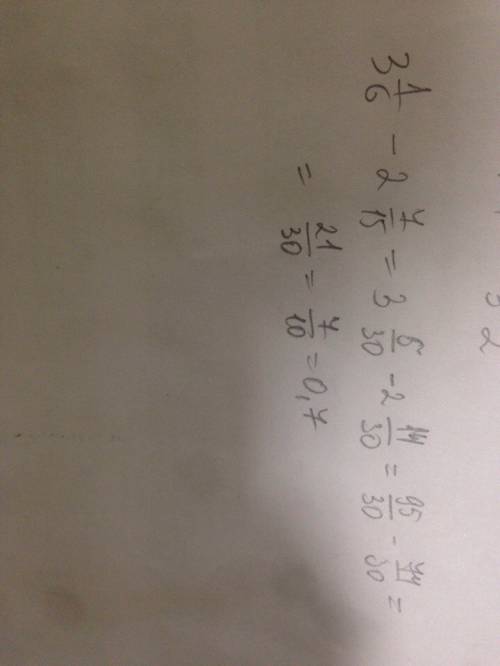 3 1/6 - 2 7/15 = 3 5/30 - 2 14/30 = 95/30 - 74/30 =
= 21/30 = 7/10 = 0,7